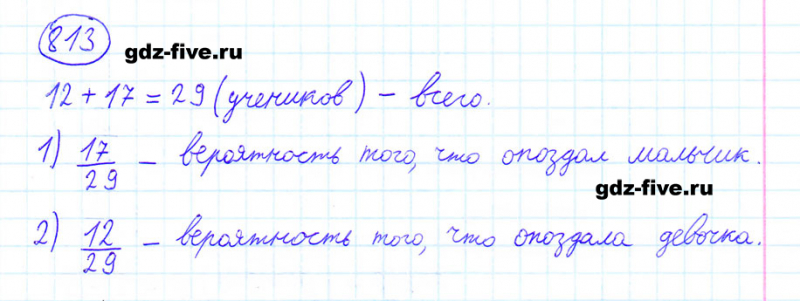 813
gdz-five.ru
12 + 17 = 29 (учеников) – всего.
1) 17/29 – вероятность того, что опоздал мальчик.
gdz-five.ru
2) 12/29 – вероятность того, что опоздала девочка.